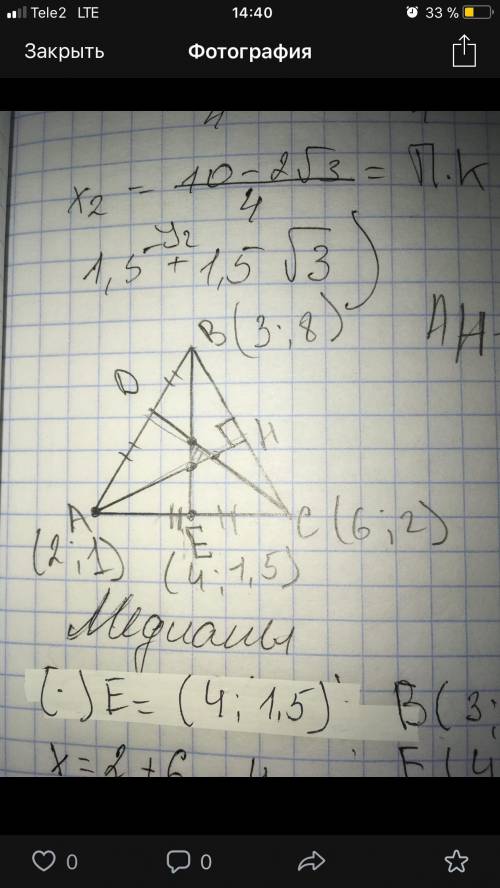 Tele2 LTE 14:40 33 %
Закрыть Фотография
x₂ = (10 - 2√3)/4 = П.К
y₂
1,5 + 1,5 √3 )
B(3;8)
AH
D
H
A E C(6;2)
(2;1) (4;1,5)
Медианы
(·) E = (4; 1,5) B(3;
x = 2 + 6
0 0